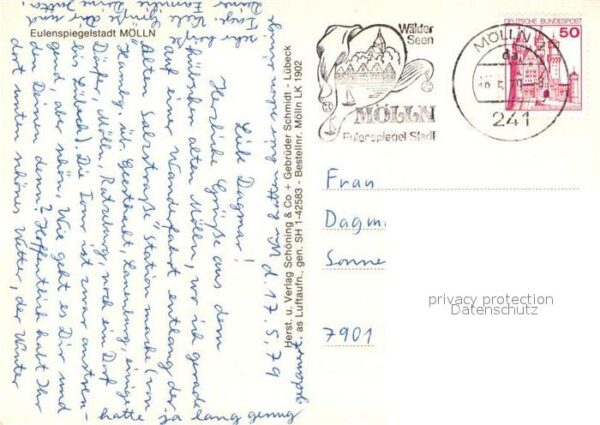 Eulenspiegelstadt MÖLLN
Herst. u. Verlag Schöning & Co + Gebrüder Schmidt - Lübeck
as Luftaufn., gen. SH 1-42583 - Bestellnr. Mölln LK 1902
Wälder
Seen
MÖLLN
Eulenspiegel-Stadt
MÖLLN
241
DEUTSCHE BUNDESPOST
50
d. 17.5.79
Liebe Dagmar!
Herzliche Grüße aus dem
hübschen alten Mölln, wo ich gerade
auf einer Wanderfahrt entlang der
"alten Salzstraße" Station mache (von
Hamburg üb. Geesthacht, Lauenburg, einige
Dörfer, Mölln, Ratzeburg, noch ein Dorf
bis Lübeck). Die Tour ist zwar anstren-
gend, aber schön. Wie geht es Dir und
den Deinen denn? Hoffentlich habt Ihr
dort unten schönes Wetter, der Winter
hatte ja lang genug
gedauert.
Frau
Dagm
Sonne
7901
privacy protection
Datenschutz